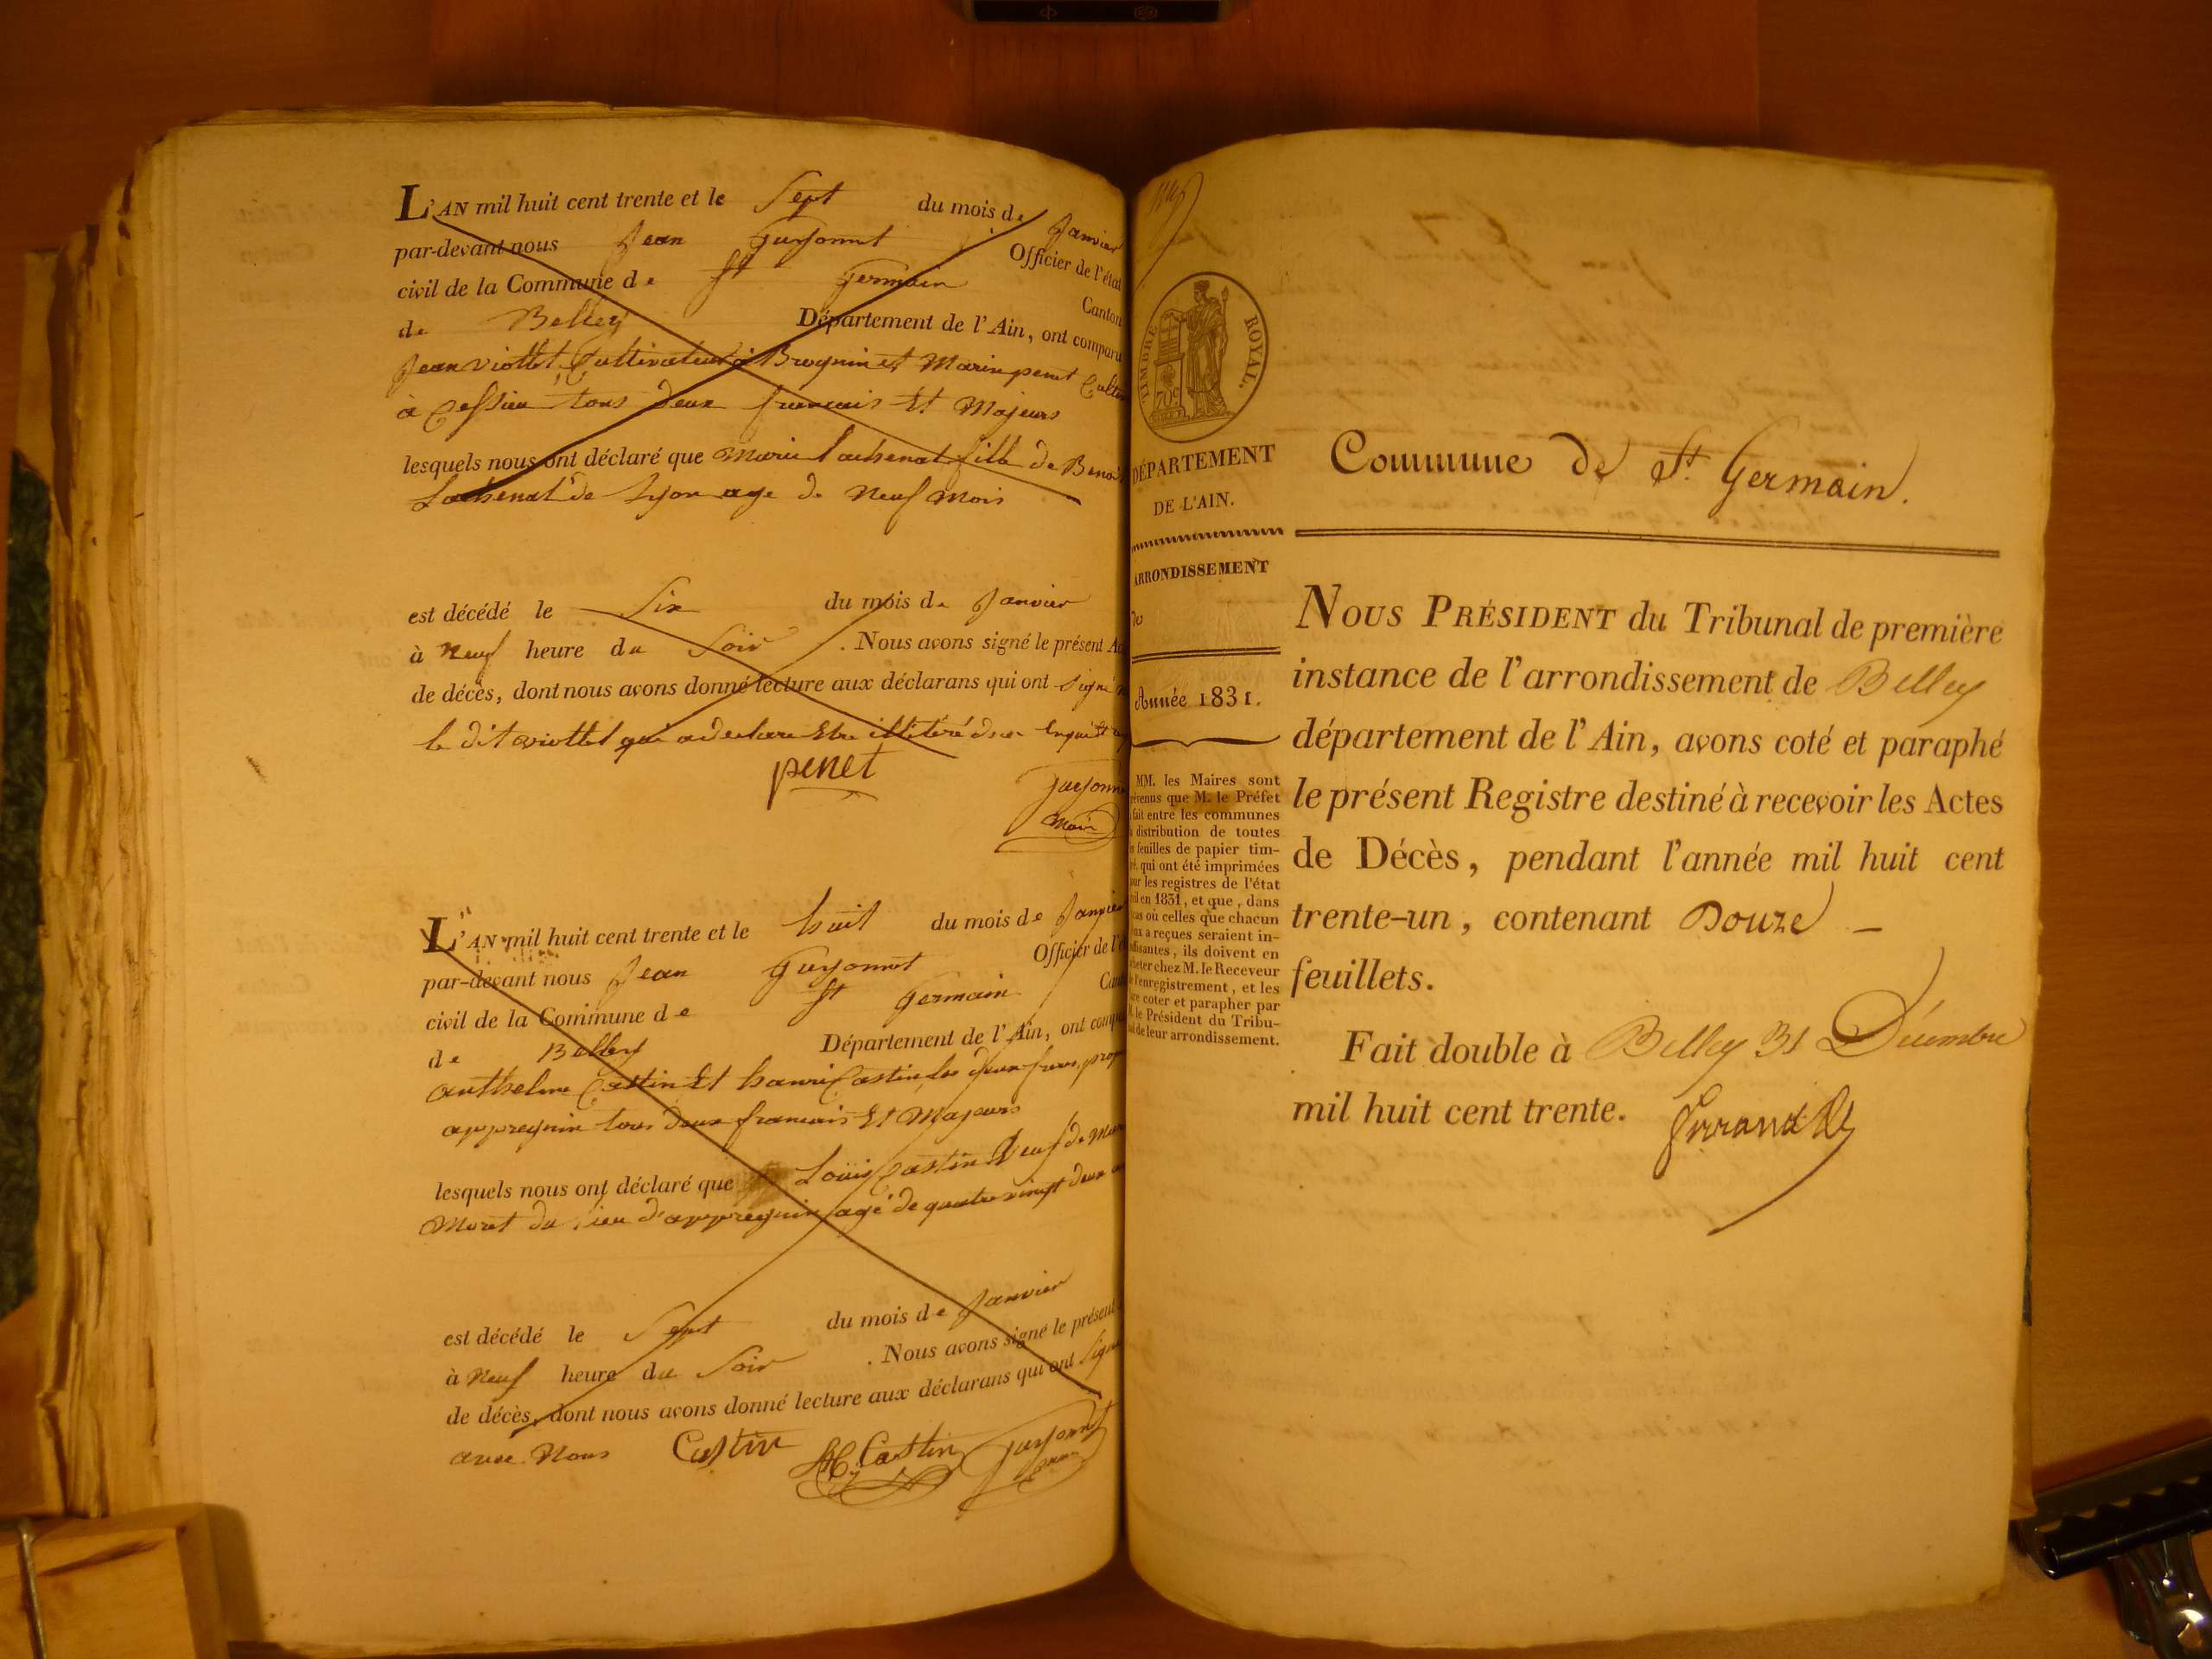 L'AN mil huit cent trente et le Sept du mois de Janvier
par-devant nous Jean Guyonnet Officier de l'état
civil de la Commune de St Germain Canton
de Belley Département de l'Ain, ont comparu
Jean viollet Cultivateur à Brognin et Marin penet
à Cessieu tous deux francais Et Majeurs
lesquels nous ont déclaré que Marie Lachenat fille de
Lachenat de Lyon age de Neuf Mois
est décédé le Six du mois de Janvier
à Neuf heure du Soir . Nous avons signé le présent
de décès, dont nous avons donné lecture aux déclarans qui ont signé
le dit viollet qui a declare Etre illiteré de ce
penet
Guyonnet
Maire
L'AN mil huit cent trente et le huit du mois de Janvier
par-devant nous Jean Guyonnet Officier de
civil de la Commune de St Germain
de Belley Département de l'Ain, ont
anthelme Castin Et hanri Castin les deux freres
appregnin tous deux francais Et Majeurs
lesquels nous ont déclaré que Louis Castin Veuf de
Moret du lieu d'appregnin agé de quatre vingt deux
est décédé le Sept du mois de Janvier
à Neuf heure du Soir . Nous avons signé le présent
de décès, dont nous avons donné lecture aux déclarans qui ont signé
avec Nous Castin Castin Guyonnet
TIMBRE ROYAL.
70c
DÉPARTEMENT
DE L'AIN.
ARRONDISSEMENT
de
Année 1831.
MM. les Maires sont
que M. le Préfet
fait entre les communes
distribution de toutes
feuilles de papier tim-
qui ont été imprimées
les registres de l'état
en 1831, et que, dans
cas où celles que chacun
a reçues seraient in-
, ils doivent en
chez M. le Receveur
l'enregistrement, et les
coter et parapher par
le Président du Tribu-
de leur arrondissement.
Commune de St. Germain.
NOUS PRÉSIDENT du Tribunal de première
instance de l'arrondissement de Belley
département de l'Ain, avons coté et paraphé
le présent Registre destiné à recevoir les Actes
de Décès, pendant l'année mil huit cent
trente-un, contenant Douze
feuillets.
Fait double à Belley 31 Décembre
mil huit cent trente.